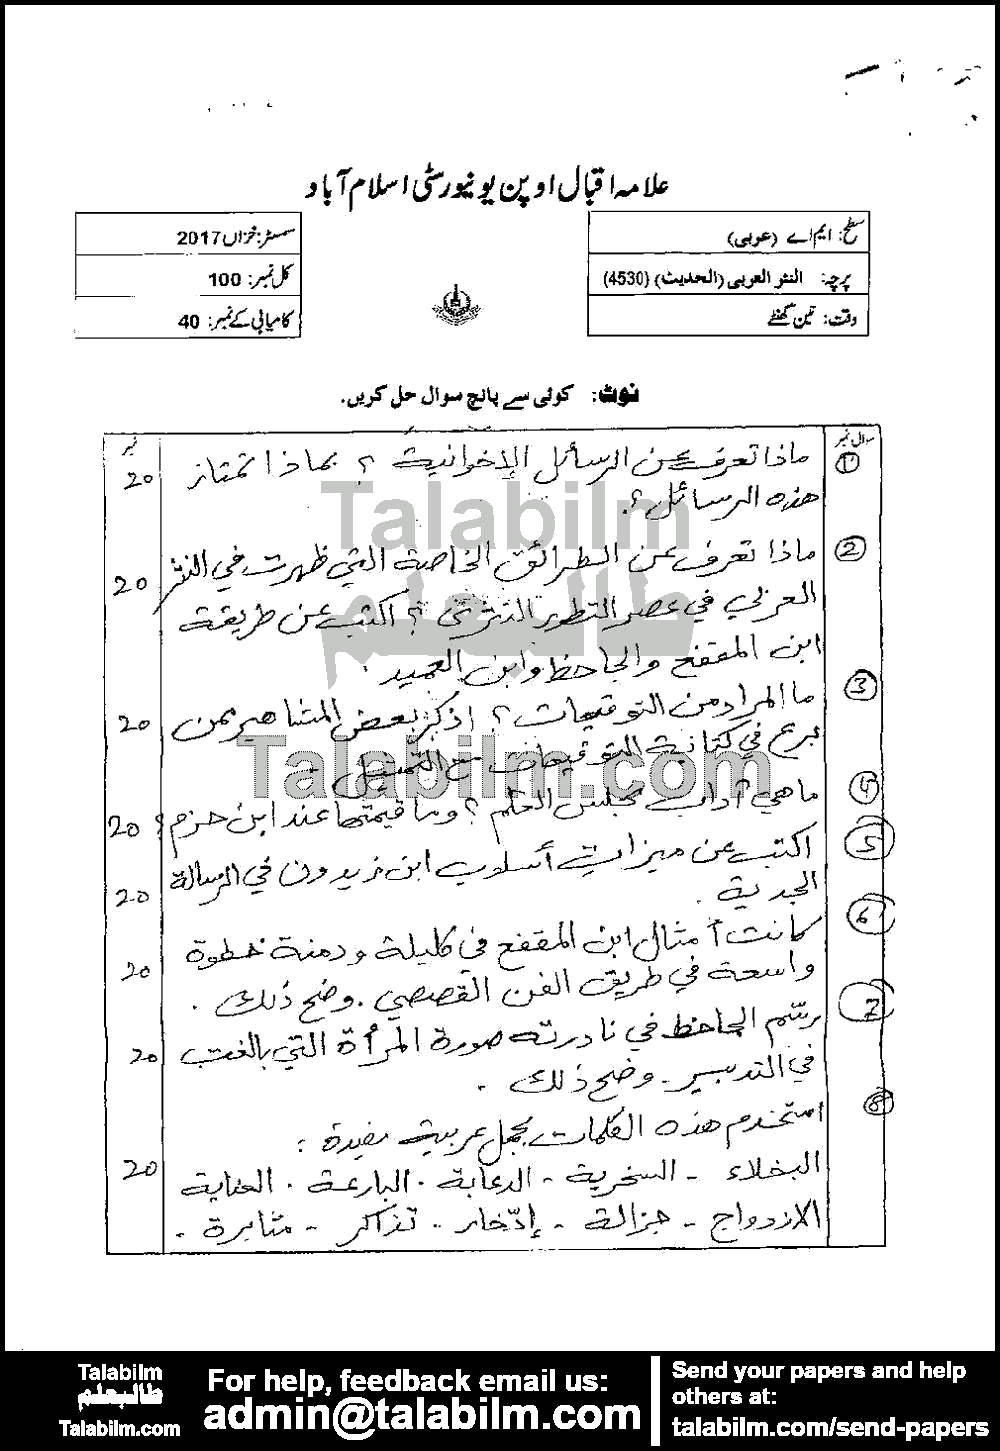 علامہ اقبال اوپن یونیورسٹی اسلام آباد
سطح: ایم اے (عربی)
پرچہ: النثر العربی (الحدیث) (4530)
وقت: تین گھنٹے
سمسٹر: خزاں 2017
کل نمبر: 100
کامیابی کے نمبر: 40
نوٹ: کوئی سے پانچ سوال حل کریں۔
سوال نمبر
نمبر
① ماذا تعرف عن الرسائل الإخوانية ؟ بماذا تمتاز 20
هذه الرسائل ؟.
② ماذا تعرف عن الطرائق الخاصة التي ظهرت في النثر 20
العربي في عصر التطور النثري ؟ اكتب عن طريقة
ابن المقفع والجاحظ وابن العميد .
③ ما المراد من التوقيعات ؟ اذكر بعض المشاهير ممن 20
برع في كتابة التوقيعات مع التمثيل .
④ ما هي آداب مجلس العلم ؟ وما قيمتها عند ابن حزم ؟ 20
5 اكتب عن ميزات أسلوب ابن زيدون في الرسالة 20
الجدية .
6 كانت أمثال ابن المقفع في كليلة ودمنة خطوة 20
واسعة في طريق الفن القصصي . وضح ذلك .
7 رسم الجاحظ في نادرته صورة المرأة التي بالغت 20
في التدبير . وضح ذلك .
8 استخدم هذه الكلمات بجمل عربية مفيدة : 20
البخلاء - السخرية - الدعابة . البارعة . العناية
الازدواج - جزالة - إدّخار . تذاكر - مثابرة .
Talabilm
طالبعلم
Talabilm.com
Talabilm
طالبعلم
Talabilm.com
For help, feedback email us:
admin@talabilm.com
Send your papers and help
others at:
talabilm.com/send-papers